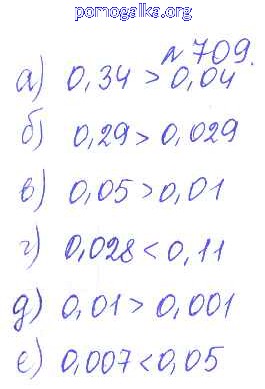 pomogalka.org
№ 709.
а) 0,34 > 0,04
б) 0,29 > 0,029
в) 0,05 > 0,01
г) 0,028 < 0,11
д) 0,01 > 0,001
е) 0,007 < 0,05